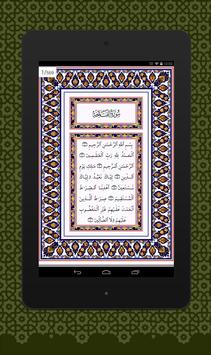 1/569
سُورَةُ الفَاتِحَةِ
بِسْمِ ٱللَّهِ ٱلرَّحْمَٰنِ ٱلرَّحِيمِ ۝
ٱلْحَمْدُ لِلَّهِ رَبِّ ٱلْعَٰلَمِينَ ۝
ٱلرَّحْمَٰنِ ٱلرَّحِيمِ ۝ مَٰلِكِ يَوْمِ
ٱلدِّينِ ۝ إِيَّاكَ نَعْبُدُ وَإِيَّاكَ
نَسْتَعِينُ ۝ ٱهْدِنَا ٱلصِّرَٰطَ
ٱلْمُسْتَقِيمَ ۝ صِرَٰطَ ٱلَّذِينَ
أَنْعَمْتَ عَلَيْهِمْ غَيْرِ ٱلْمَغْضُوبِ
عَلَيْهِمْ وَلَا ٱلضَّآلِّينَ ۝